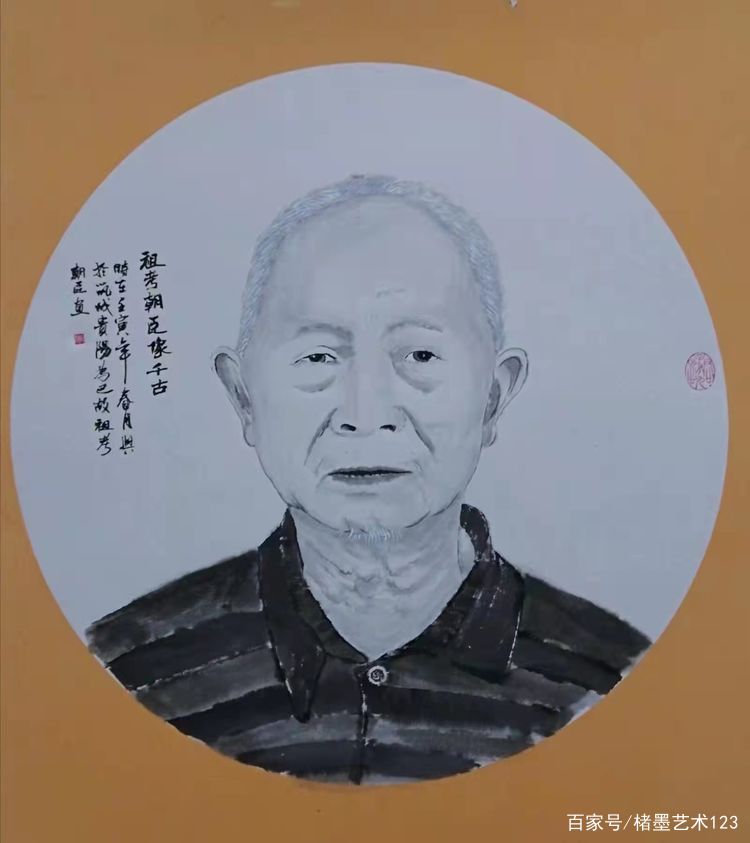 祖考朝臣像千古
時在壬寅年春月與
於筑城貴陽為已故祖考
朝臣画
百家号/楮墨艺术123